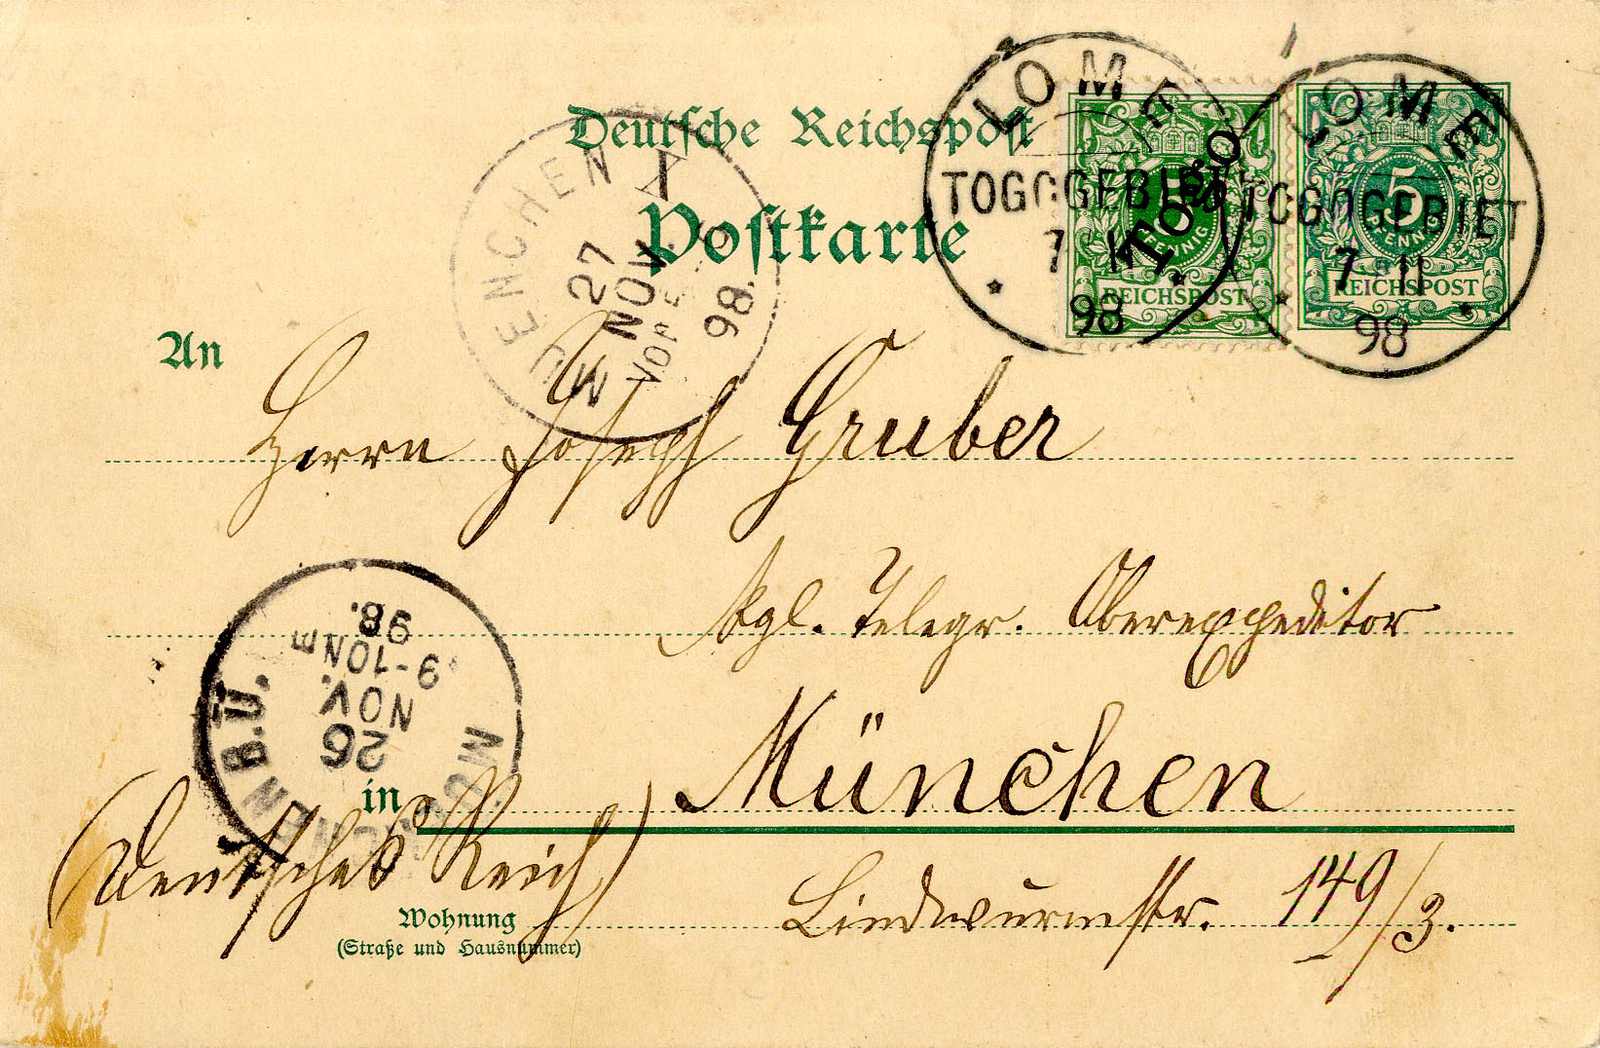 Deutsche Reichspost
Postkarte
LOME
TOGOGEBIET
7 11
98
TOGO
5
PFENNIG
REICHSPOST
LOME
TOGOGEBIET
7 11
98
5
PFENNIG
REICHSPOST
MUENCHEN I
27
NOV.
VOR
98.
An
Herrn Joseph Gruber
Kgl. Telegr. Oberexpeditor
MUENCHEN B.Ü.
26
NOV.
9-10Nm
98.
in München
(Deutsches Reich)
Wohnung
(Straße und Hausnummer)
Lindwurmstr. 149/3.